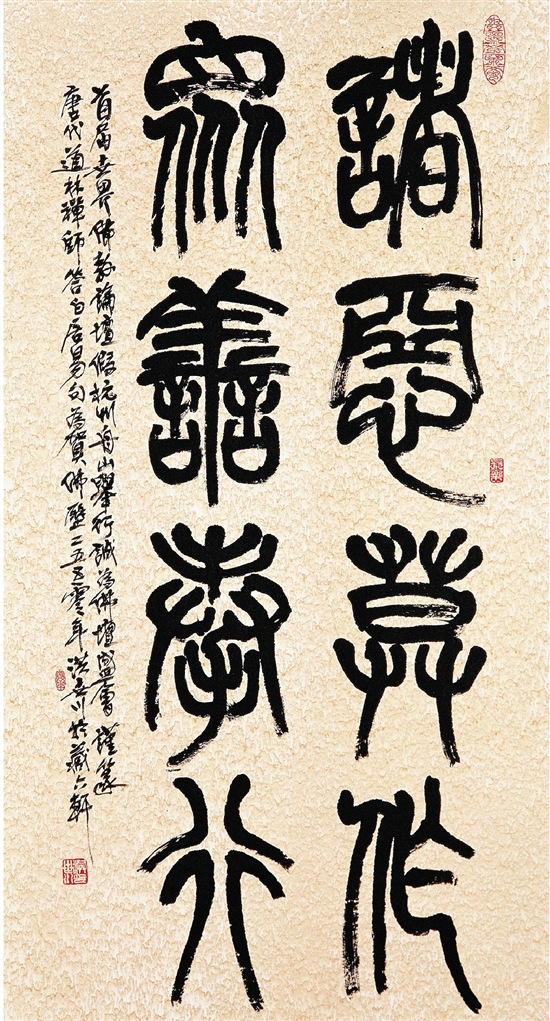 諸惡莫作
眾善奉行
首屆世界佛教論壇假杭州舟山舉行誠為佛壇盛會謹篆
唐代道林禪師答白居易句為賀佛曆二五五零年洪世川於藏六軒